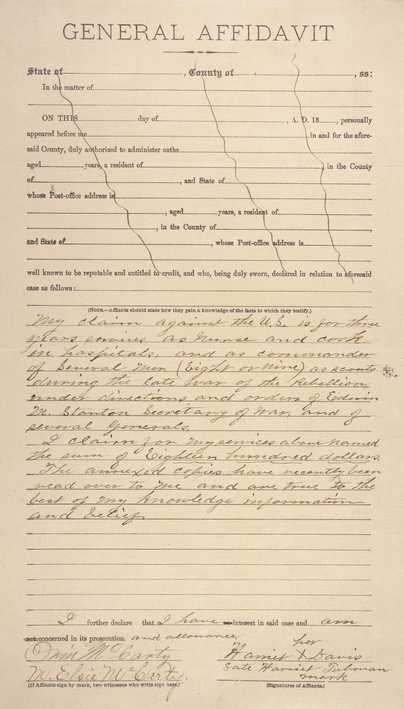 GENERAL AFFIDAVIT
State of , County of , ss:
In the matter of
ON THIS day of , A. D. 18 , personally
appeared before me in and for the afore-
said County, duly authorized to administer oaths
aged years, a resident of in the County
of , and State of
whose Post-office address is
, aged years, a resident of
, in the County of
and State of , whose Post-office address is
well known to be reputable and entitled to credit, and who, being duly sworn, declared in relation to aforesaid
case as follows:
(NOTE.—Affiants should state how they gain a knowledge of the facts to which they testify.)
My claim against the U.S. is for three
years services as nurse and cook
in hospitals, and as commander
of Several men (Eight or nine) as scouts
during the late war of the Rebellion,
under directions and orders of Edwin
M. Stanton Secretary of War, and of
several Generals.
I claim for my services above named
the sum of Eighteen hundred dollars.
The annexed copies have recently been
read over to me and are true to the
best of my knowledge information
and belief.
I further declare that I have interest in said case and am
not concerned in its prosecution. and allowance
her
McCarty Harriet X Davis
late Harriet Tubman
M. Elsie McCarty. mark
(If Affiants sign by mark, two witnesses who write sign here.) (Signatures of Affiants.)